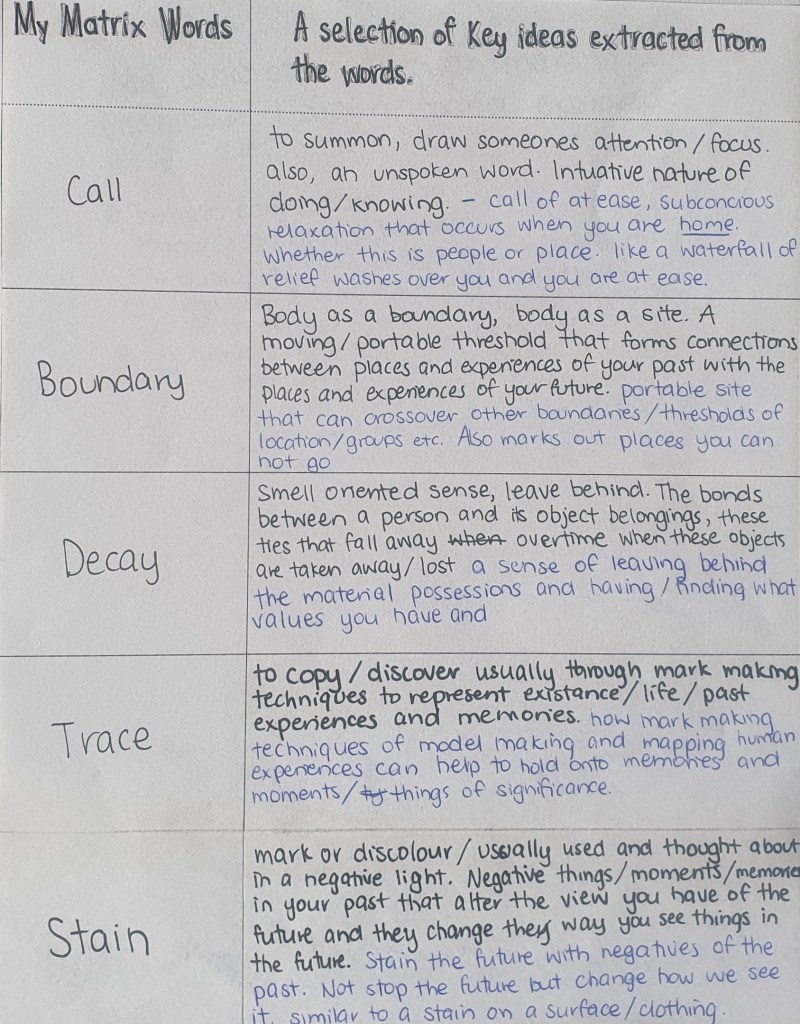 My Matrix Words
A selection of Key ideas extracted from
the words.
Call
to summon, draw someones attention / focus.
also, an unspoken word. Intuative nature of
doing/knowing. - call of at ease, subconcious
relaxation that occurs when you are home.
Whether this is people or place. like a waterfall of
relief washes over you and you are at ease.
Boundary
Body as a boundary, body as a site. A
moving/portable threshold that forms connections
between places and experiences of your past with the
places and experiences of your future. portable site
that can crossover other boundaries/thresholds of
location/groups etc. Also marks out places you can
not go
Decay
Smell oriented sense, leave behind. The bonds
between a person and its object belongings, these
ties that fall away when overtime when these objects
are taken away/lost a sense of leaving behind
the material possessions and having/finding what
values you have and
Trace
to copy/discover usually through mark making
techniques to represent existance/life/past
experiences and memories. how mark making
techniques of model making and mapping human
experiences can help to hold onto memories and
moments/ty things of significance.
Stain
mark or discolour/usually used and thought about
in a negative light. Negative things/moments/memories
in your past that alter the view you have of the
future and they change they way you see things in
the future. Stain the future with negatives of the
past. Not stop the future but change how we see
it. similar to a stain on a surface/clothing.